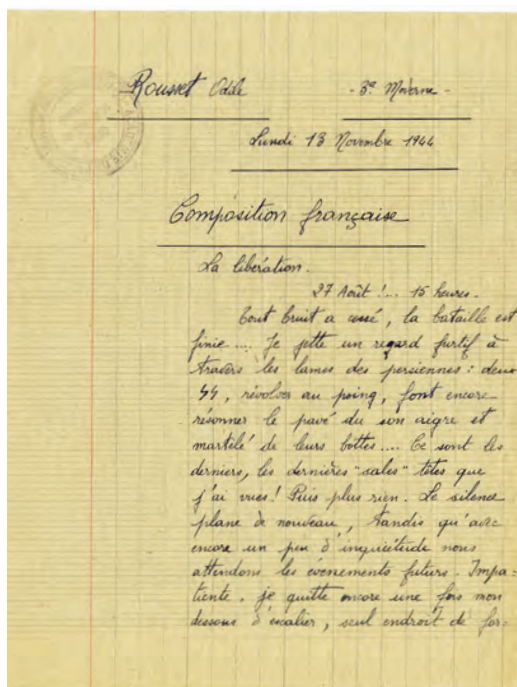 Rousset Odile - 3e Moderne -
Lundi 13 Novembre 1944
Composition française
La libération.
27 Août !... 15 heures.
Tout bruit a cessé, la bataille est
finie .... Je jette un regard furtif à
travers les lames des persiennes : deux
SS, révolver au poing, font encore
résonner le pavé du son aigre et
martelé de leurs bottes .... Ce sont les
derniers, les dernières "sales" têtes que
j'ai vues ! Puis plus rien. Le silence
plane de nouveau, tandis qu'avec
encore un peu d'inquiétude nous
attendons les évenements futurs. Impa-
tiente, je quitte encore une fois mon
dessous d'escalier, seul endroit de for-